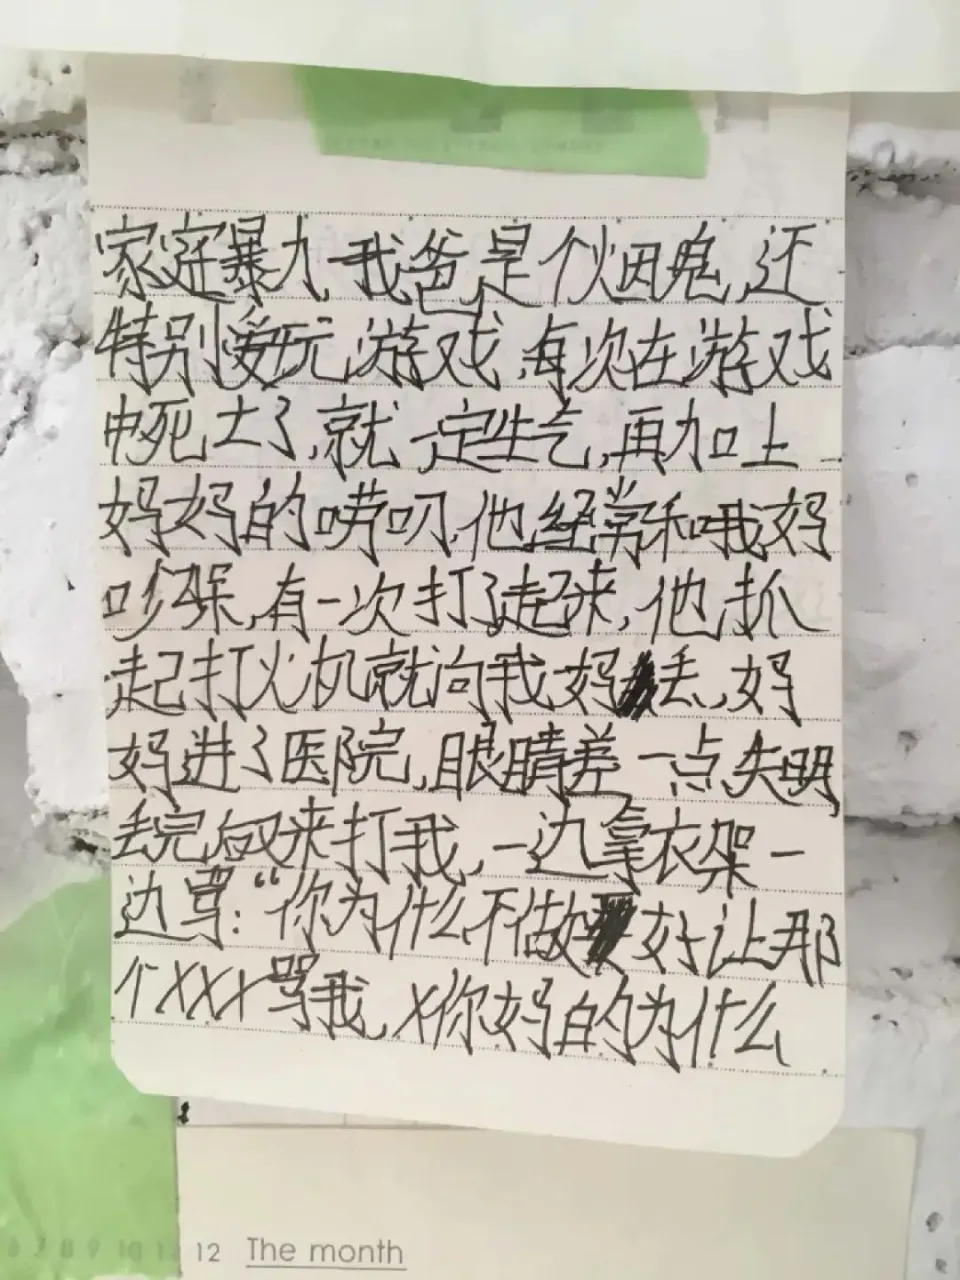 家庭暴力,我爸是个烟鬼,还
特别爱玩游戏,每次在游戏
中死亡了,就一定生气,再加上
妈妈的唠叨,他经常和我妈
吵架,有一次打了起来,他抓
起打火机就向我妈丢,妈
妈进了医院,眼睛差一点失明,
丢完回来打我,一边拿衣架一
边骂:“你为什么不做好让那
个XXX骂我,X你妈的为什么
12 The month